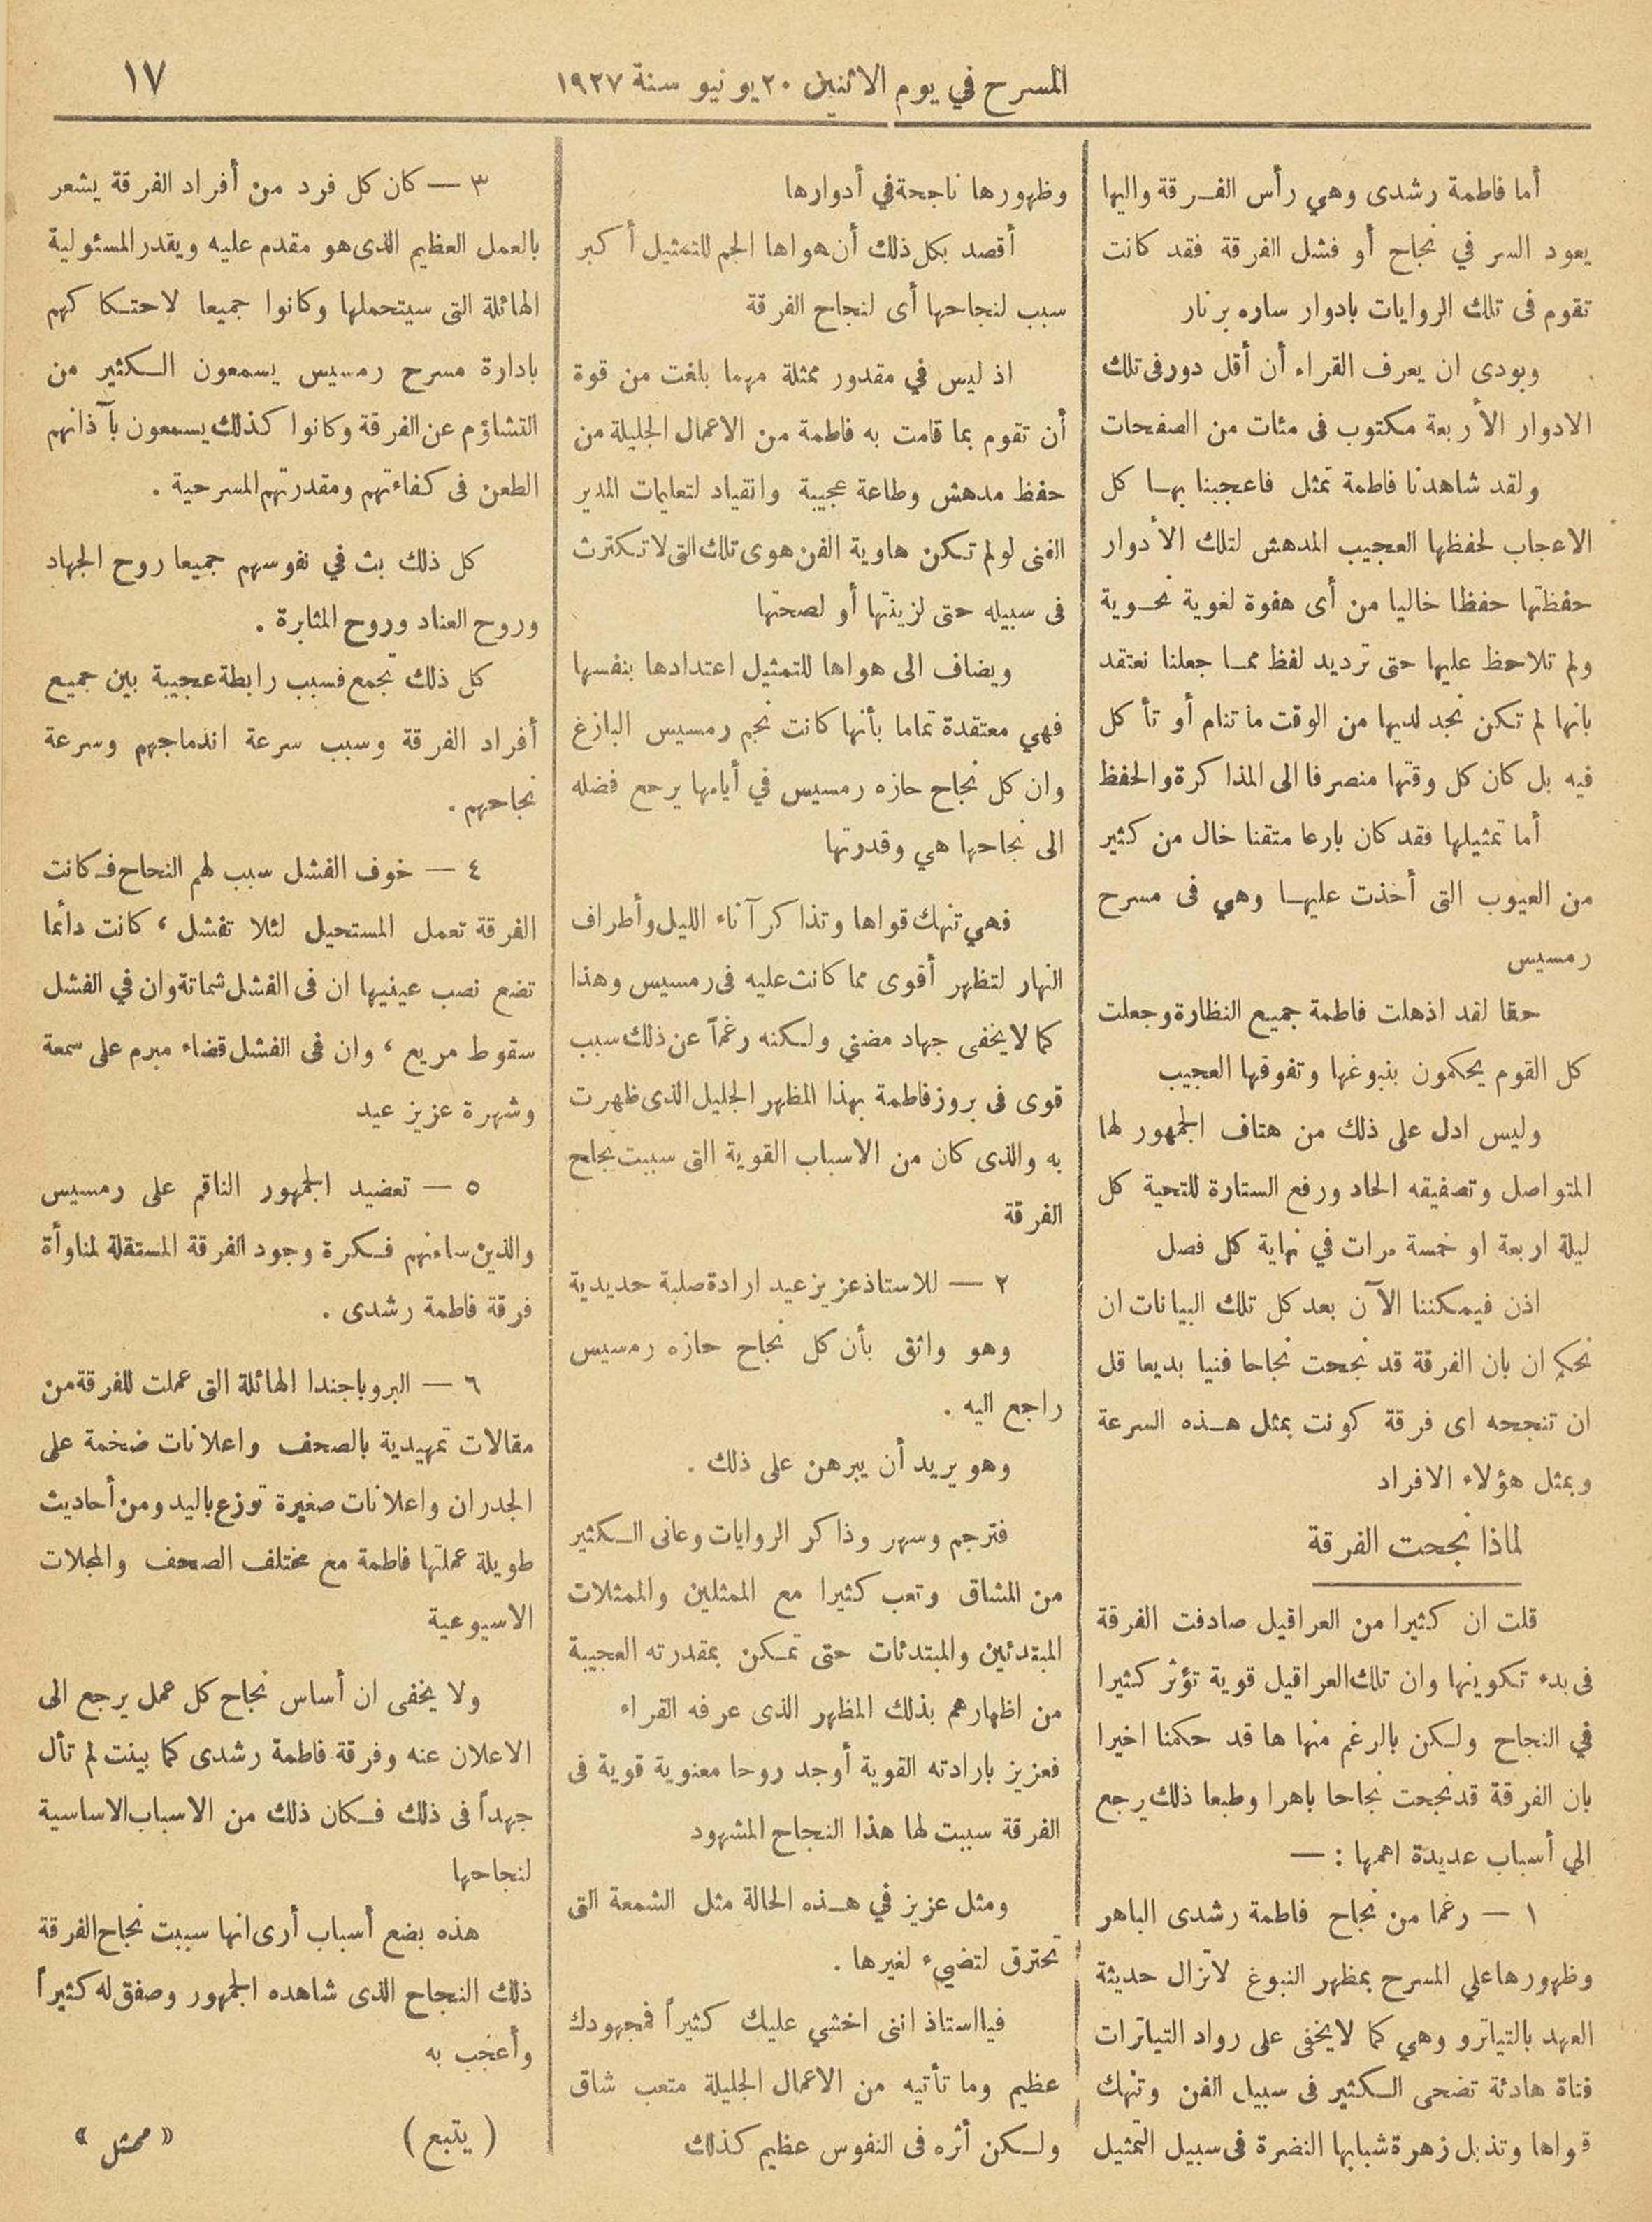 المسرح في يوم الاثنين ٢٠ يونيو سنة ١٩٢٧
١٧
أما فاطمة رشدى وهي رأس الفرقة واليها
يعود السر في نجاح أو فشل الفرقة فقد كانت
تقوم فى تلك الروايات بادوار ساره برنار
وبودى ان يعرف القراء أن أقل دور فى تلك
الادوار الأربعة مكتوب فى مئات من الصفحات
ولقد شاهدنا فاطمة تمثل فاعجبنا بها كل
الاعجاب لحفظها العجيب المدهش لتلك الأدوار
حفظتها حفظا خاليا من أى هفوة لغوية نحوية
ولم تلاحظ عليها حتى ترديد لفظ مما جعلنا نعتقد
بانها لم تكن نجد لديها من الوقت ما تنام أو تأكل
فيه بل كان كل وقتها منصرفا الى المذاكرة والحفظ
أما تمثيلها فقد كان بارعا متقنا خال من كثير
من العيوب التى أخذت عليها وهي فى مسرح
رمسيس
حقا لقد اذهلت فاطمة جميع النظارة وجعلت
كل القوم يحكمون بنبوغها وتفوقها العجيب
وليس ادل على ذلك من هتاف الجمهور لها
المتواصل وتصفيقه الحاد ورفع الستارة للتحية كل
ليلة اربعة او خمسة مرات في نهاية كل فصل
اذن فيمكننا الآن بعد كل تلك البيانات ان
نحكم ان بان الفرقة قد نجحت نجاحا فنيا بديعا قل
ان تنجحه اى فرقة كونت بمثل هذه السرعة
وبمثل هؤلاء الافراد
لماذا نجحت الفرقة
قلت ان كثيرا من العراقيل صادفت الفرقة
فى بدء تكوينها وان تلك العراقيل قوية تؤثر كثيرا
في النجاح ولكن بالرغم منها ها قد حكمنا اخيرا
بان الفرقة قد نجحت نجاحا باهرا وطبعا ذلك يرجع
الي أسباب عديدة اهمها : —
١ — رغما من نجاح فاطمة رشدى الباهر
وظهورها علي المسرح بمظهر النبوغ لاتزال حديثة
العهد بالتياترو وهي كما لا يخفى على رواد التياترات
فتاة هادئة تضحى الكثير فى سبيل الفن وتنهك
قواها وتذبل زهرة شبابها النضرة فى سبيل التمثيل
وظهورها ناجحة في أدوارها
أقصد بكل ذلك أن هواها الجم للتمثيل أكبر
سبب لنجاحها أى لنجاح الفرقة
اذ ليس في مقدور ممثلة مهما بلغت من قوة
أن تقوم بما قامت به فاطمة من الاعمال الجليلة من
حفظ مدهش وطاعة عجيبة وانقياد لتعليمات المدير
الفنى لو لم تكن هاوية الفن هوى تلك التى لا تكترث
فى سبيله حتى لزينتها أو لصحتها
ويضاف الى هواها للتمثيل اعتدادها بنفسها
فهي معتقدة تماما بأنها كانت نجم رمسيس البازغ
وان كل نجاح حازه رمسيس في أيامها يرجع فضله
الى نجاحها هي وقدرتها
فهي تنهك قواها وتذاكر آناء الليل وأطراف
النهار لتظهر أقوى مما كانت عليه فى رمسيس وهذا
كما لا يخفى جهاد مضني ولكنه رغماً عن ذلك سبب
قوى فى بروز فاطمة بهذا المظهر الجليل الذى ظهرت
به والذى كان من الاسباب القوية التى سببت نجاح
الفرقة
٢ — للاستاذ عزيز عيد ارادة صلبة حديدية
وهو واثق بأن كل نجاح حازه رمسيس
راجع اليه .
وهو يريد أن يبرهن على ذلك .
فترجم وسهر وذاكر الروايات وعانى الكثير
من المشاق وتعب كثيرا مع الممثلين والممثلات
المبتدئين والمبتدئات حتى تمكن بمقدرته العجيبة
من اظهارهم بذلك المظهر الذى عرفه القراء
فعزيز بارادته القوية أوجد روحا معنوية قوية فى
الفرقة سببت لها هذا النجاح المشهود
ومثل عزيز في هذه الحالة مثل الشمعة التى
تحترق لتضيء لغيرها .
فيااستاذ اننى اخشي عليك كثيراً فمجهودك
عظيم وما تأتيه من الاعمال الجليلة متعب شاق
ولكن أثره فى النفوس عظيم كذلك
٣ — كان كل فرد من أفراد الفرقة يشعر
بالعمل العظيم الذى هو مقدم عليه ويقدر المسئولية
الهائلة التى سيتحملها وكانوا جميعا لاحتكاكهم
بادارة مسرح رمسيس يسمعون الكثير من
التشاؤم عن الفرقة وكانوا كذلك يسمعون بآذانهم
الطعن فى كفاءتهم ومقدرتهم المسرحية .
كل ذلك بث في نفوسهم جميعا روح الجهاد
وروح العناد وروح المثابرة .
كل ذلك تجمع فسبب رابطة عجيبة بين جميع
أفراد الفرقة وسبب سرعة اندماجهم وسرعة
نجاحهم .
٤ — خوف الفشل سبب لهم النجاح فكانت
الفرقة تعمل المستحيل لئلا تفشل ، كانت دأئما
تضع نصب عينيها ان فى الفشل شماتة وان في الفشل
سقوط مريع ، وان فى الفشل قضاء مبرم على سمعة
وشهرة عزيز عيد
٥ — تعضيد الجمهور الناقم على رمسيس
والذين ساءتهم فكرة وجود الفرقة المستقلة لمناوأة
فرقة فاطمة رشدى .
٦ — البروباجندا الهائلة التى عملت للفرقة من
مقالات تمهيدية بالصحف واعلانات ضخمة على
الجدران واعلانات صغيرة توزع باليد ومن أحاديث
طويلة عملتها فاطمة مع مختلف الصحف والمجلات
الاسبوعية
ولا يخفى ان أساس نجاح كل عمل يرجع الى
الاعلان عنه وفرقة فاطمة رشدى كما بينت لم تأل
جهداً فى ذلك فكان ذلك من الاسباب الاساسية
لنجاحها
هذه بضع أسباب أرى انها سببت نجاح الفرقة
ذلك النجاح الذى شاهده الجمهور وصفق له كثيراً
وأعجب به
( يتبع ) « ممثل »